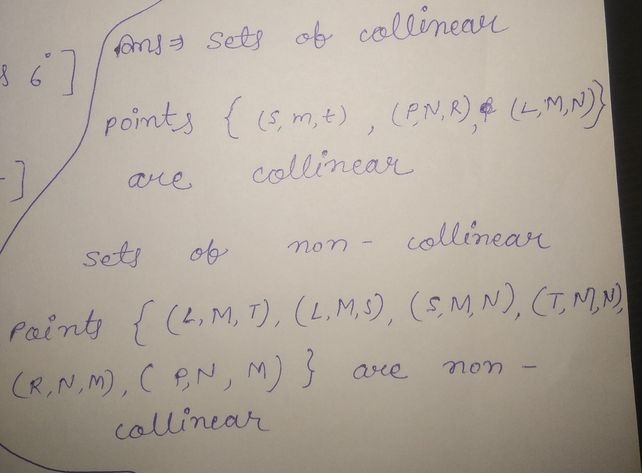 Ans ⇒ sets of collinear
s 6°]
points { (S, m, t) , (P,N,R) & (L,M,N)}
-]
are collinear
sets of non - collinear
points { (L, M, T), (L, M, S), (S, M, N), (T, M, N),
(R, N, M), ( P, N , M) } are non -
collinear